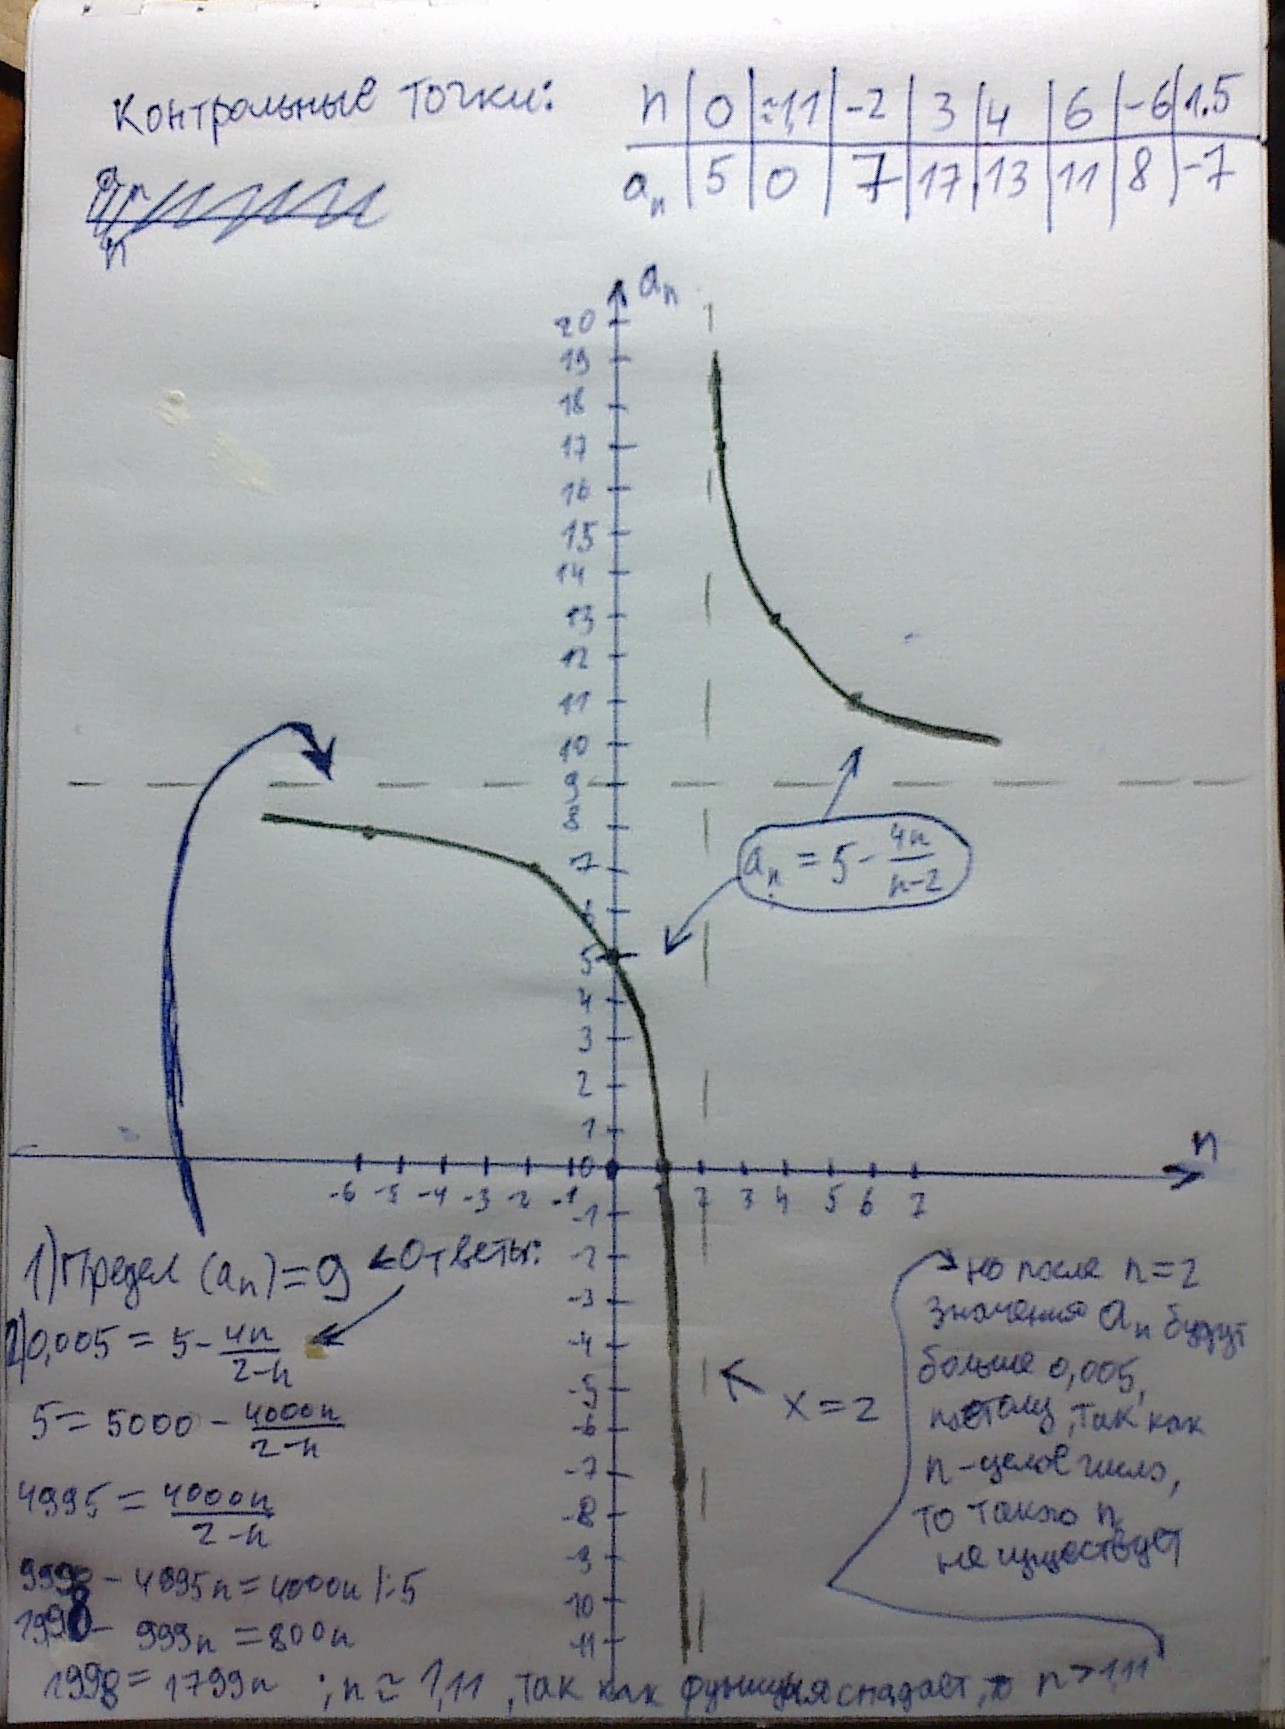 Контрольные точки:
n | 0 | ≈1,1 | -2 | 3 | 4 | 6 | -6 | 1.5
aₙ | 5 | 0 | 7 | 17 | 13 | 11 | 8 | -7
n
aₙ
20
19
18
17
16
15
14
13
12
11
10
9
8
7
6
5
4
3
2
1
aₙ = 5 - 4n/(n-2)
n
-6 -5 -4 -3 -2 -1 0 1 2 3 4 5 6 7
-1
-2
-3
-4
-5
-6
-7
-8
-9
-10
-11
x = 2
1) Предел (aₙ) = 9 ← Ответы:
2) 0,005 = 5 - 4n/(2-n)
5 = 5000 - 4000n/(2-n)
4995 = 4000n/(2-n)
9990 - 4995n = 4000n |:5
1998 - 999n = 800n
1998 = 1799n ; n ≈ 1,11 , так как функция спадает, то n > 1,11
но после n = 2
значения aₙ будут
больше 0,005,
поэтому, так как
n - целое число,
то такого n
не существует